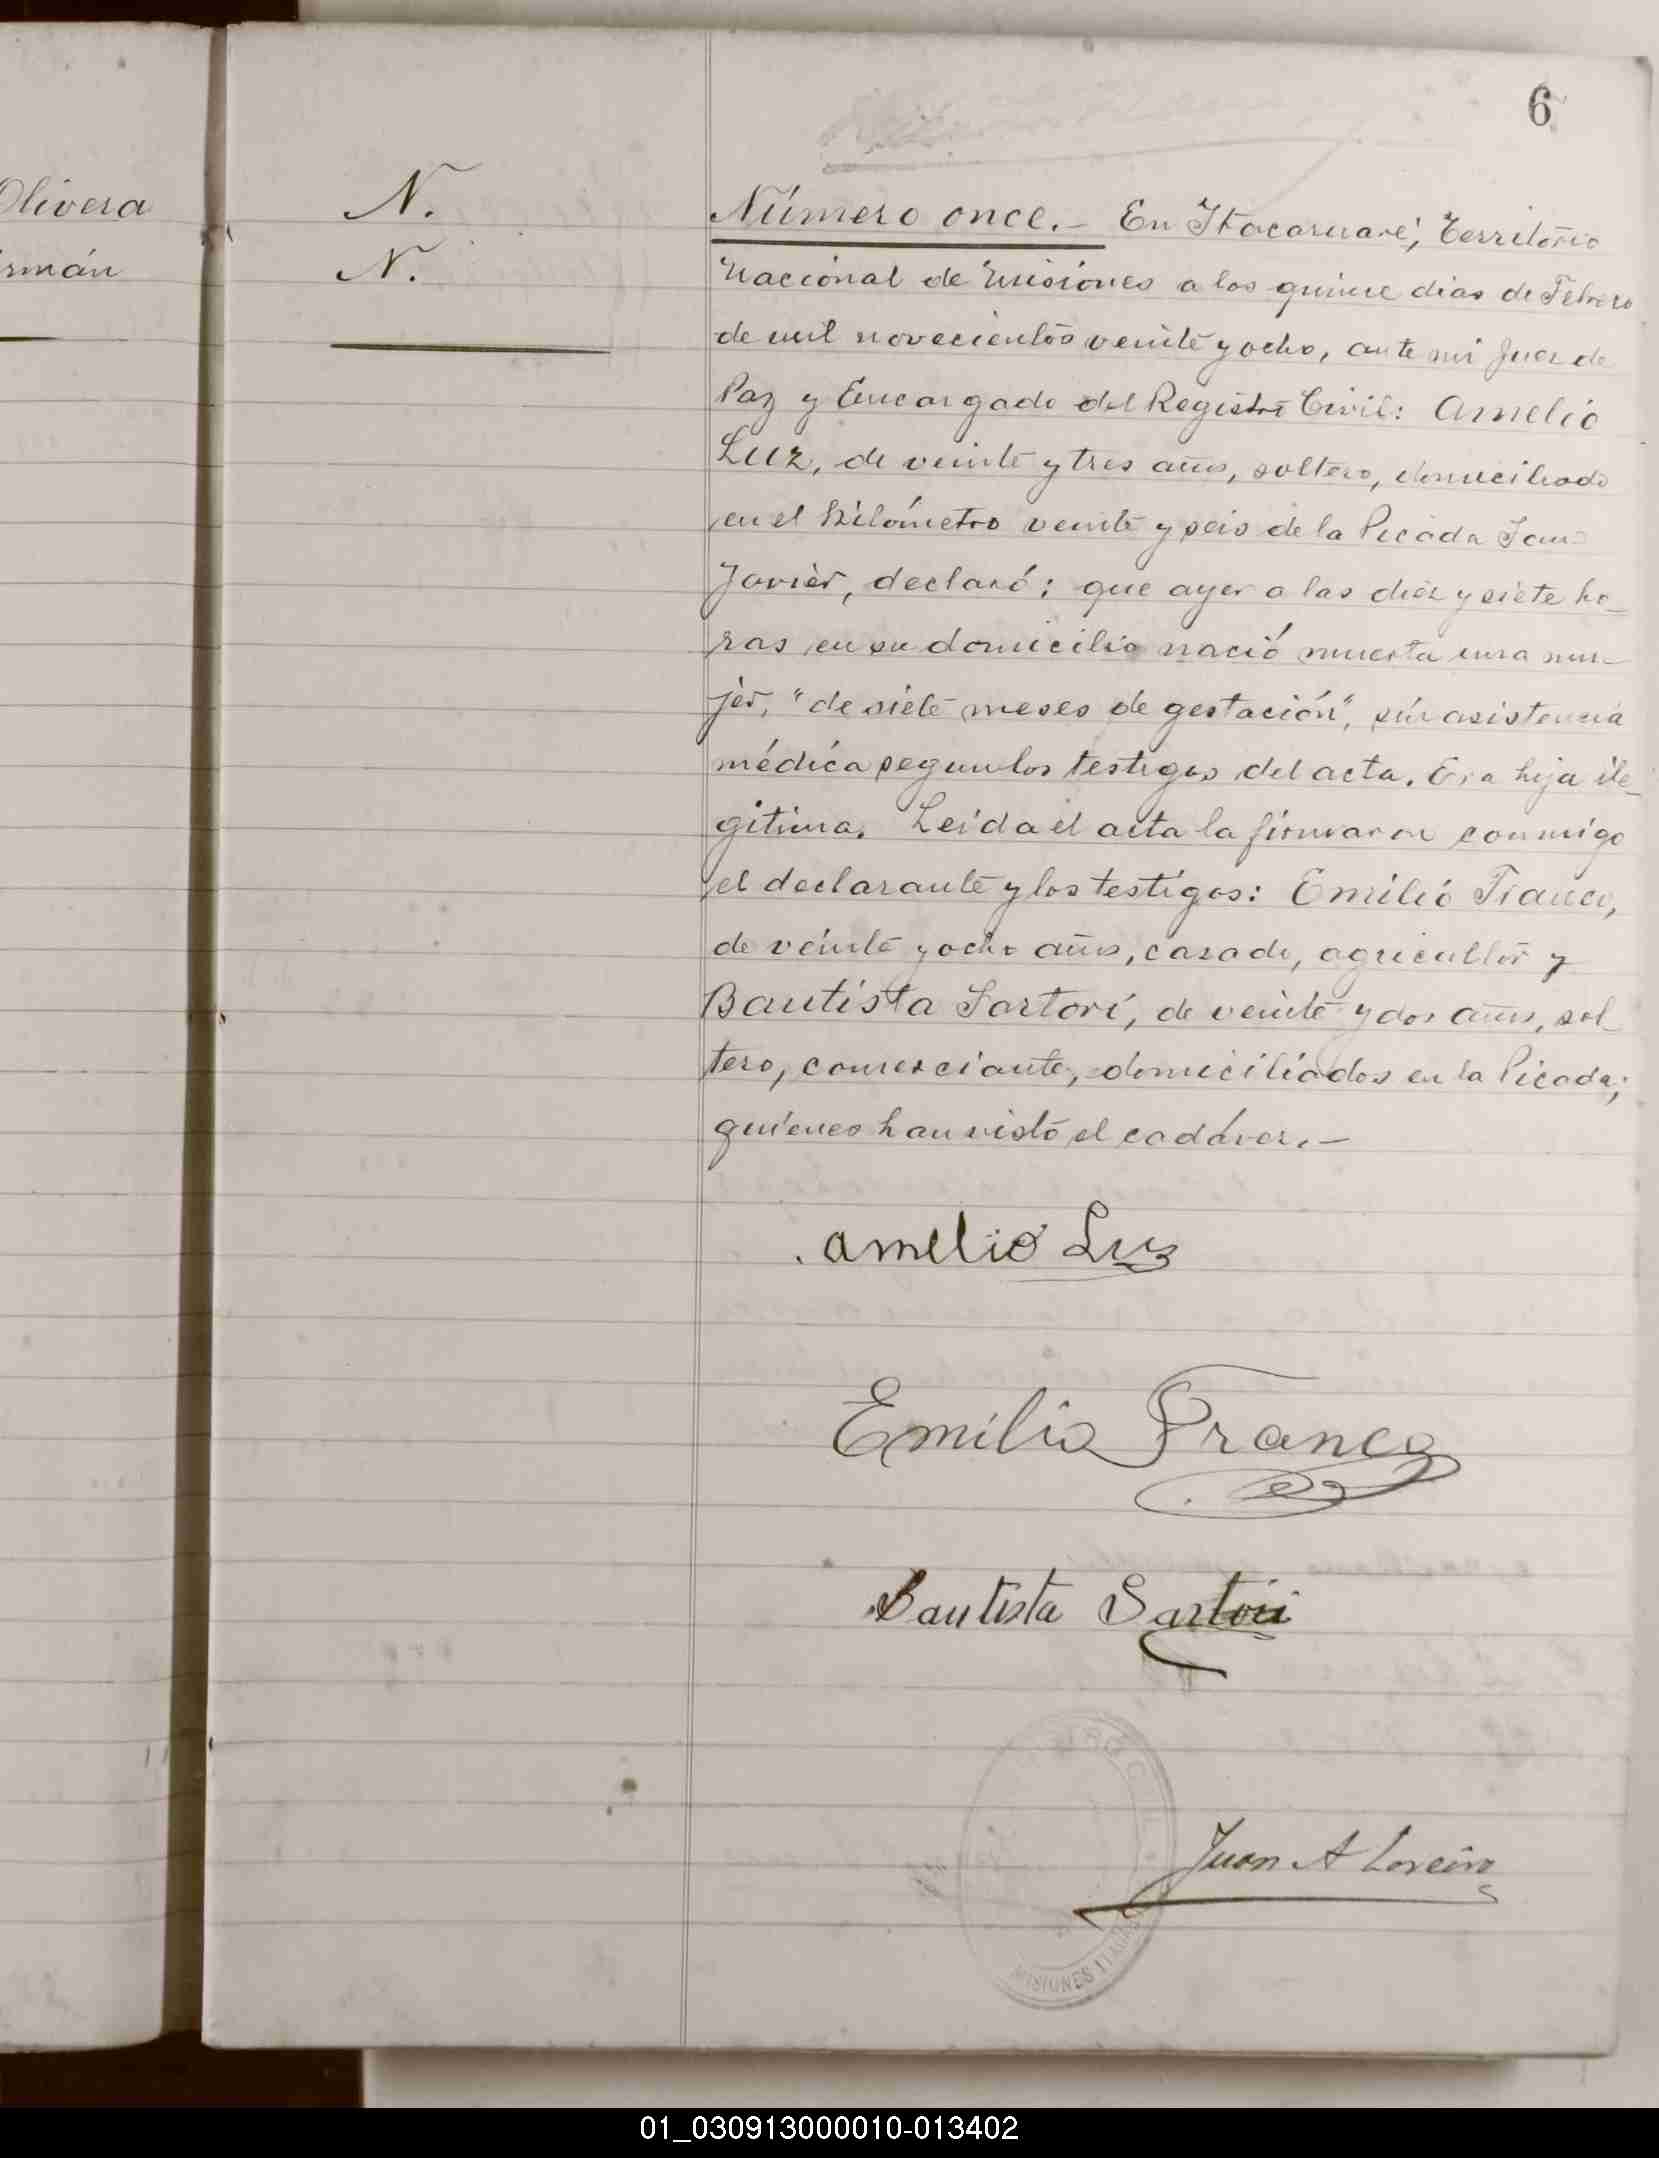 6
Olivera
rmán
N.
N.
Número once.- En Itacaruaré, Territorio
Nacional de Misiones a los quince dias de Febrero
de mil novecientos veinte y ocho, ante mi Juez de
Paz y Encargado del Registro Civil: Amelio
Luz, de veinte y tres años, soltero, domiciliado
en el Kilómetro veinte y seis de la Picada San
Javier, declaró: que ayer a las diez y siete ho-
ras en su domicilio nació muerta una mu-
jer, "de siete meses de gestación", sin asistencia
médica segun los testigos del acta. Era hija ile-
gitima. Leida el acta la firmaron conmigo
el declarante y los testigos: Emilio Franco,
de veinte y ocho años, casado, agricultor y
Bautista Sartori, de veinte y dos años, sol
tero, comerciante, domiciliados en la Picada;
quienes han visto el cadáver.-
Amelio Luz
Emilio Franco
Bautista Sartori
Juan A Loreiro
MISIONES
01_030913000010-013402